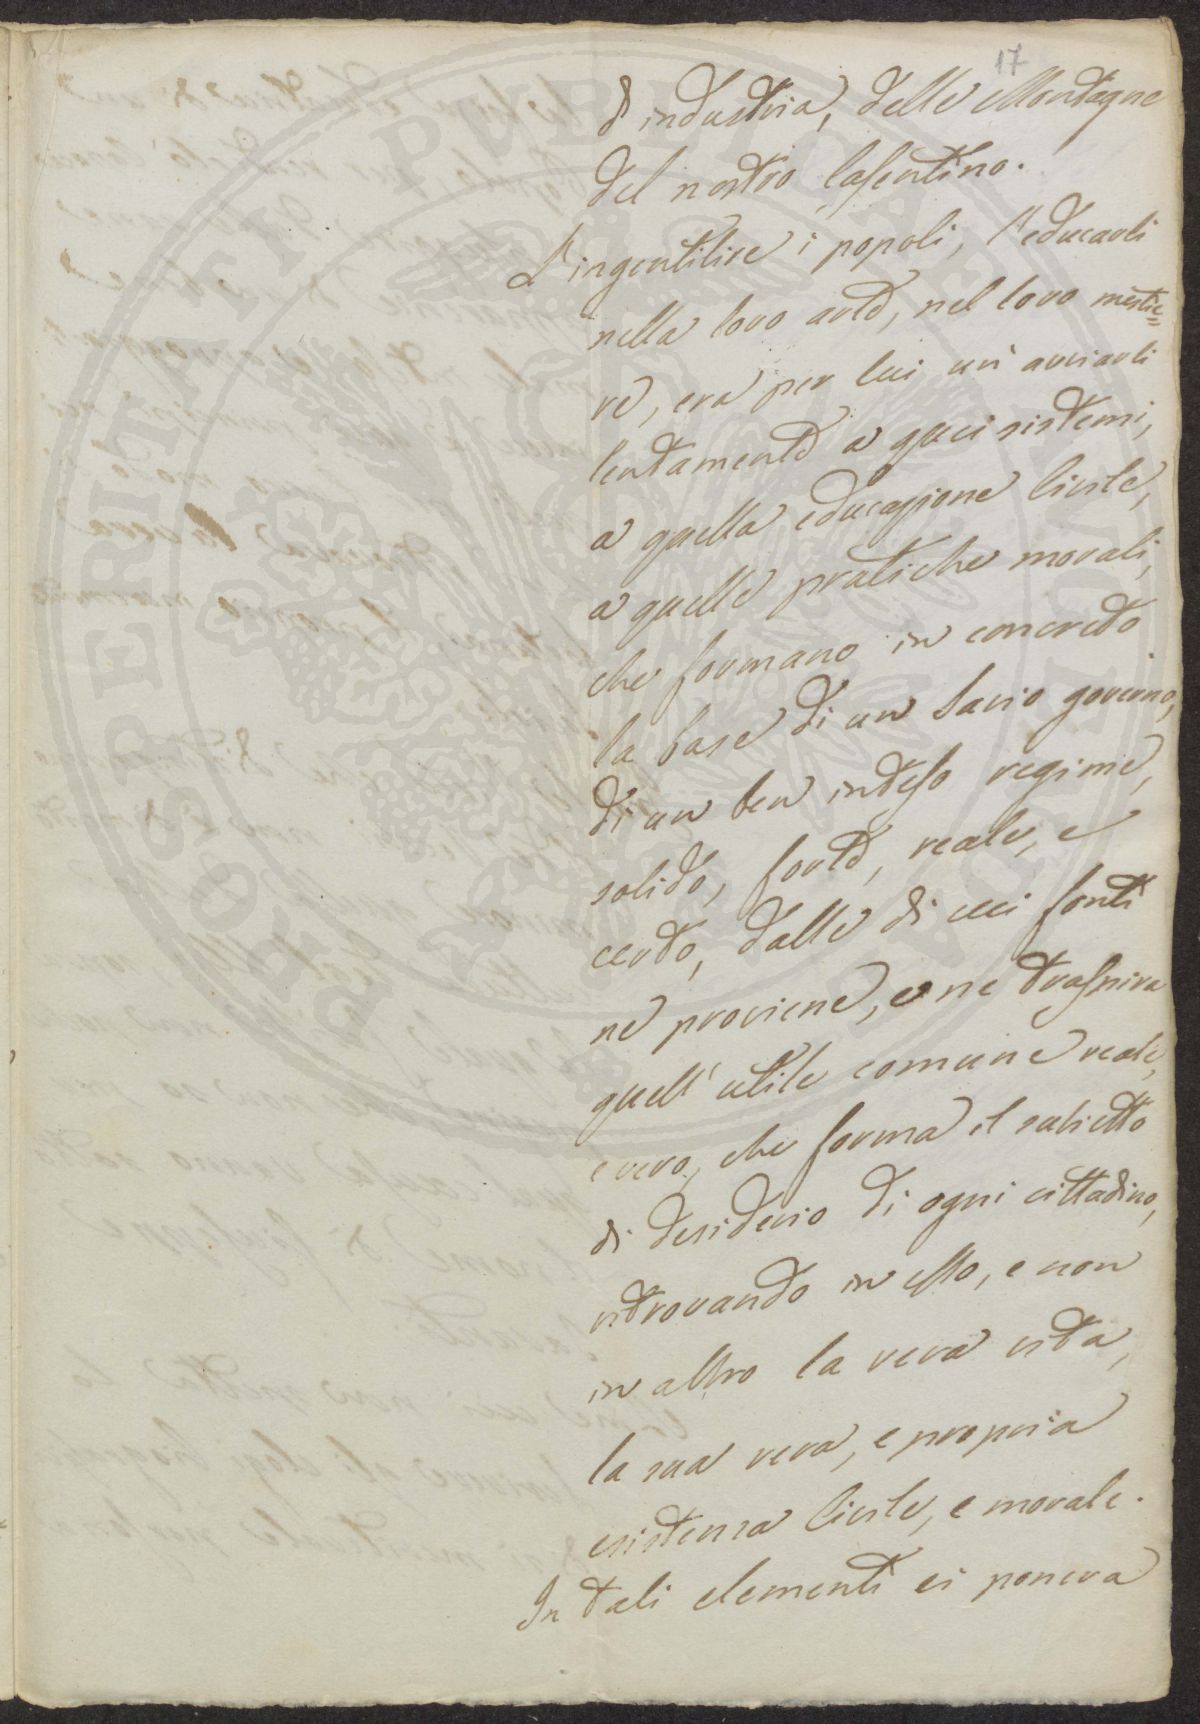 17
d'industria, delle Montagne
del nostro Casentino.
L'ingentilire i popoli, l'educarli
nella loro arte, nel loro mestie=
re, era per lui un'avviarli
lentamente a quei sistemi,
a quella educazione Civile,
a quelle pratiche morali,
che formano in concreto
la base di un Savio governo,
di un ben inteso regime,
solido, forte, reale, e
certo, dalle di cui fonti
ne proviene, e ne traspira
quell'utile comune reale,
e vero, che forma il subietto
di desiderio di ogni cittadino,
ritrovando in esso, e non
in altro la vera vita,
la sua vera, e propria
esistenza Civile, e morale.
In tali elementi ei poneva
PROSPERITATI PVBLICAE